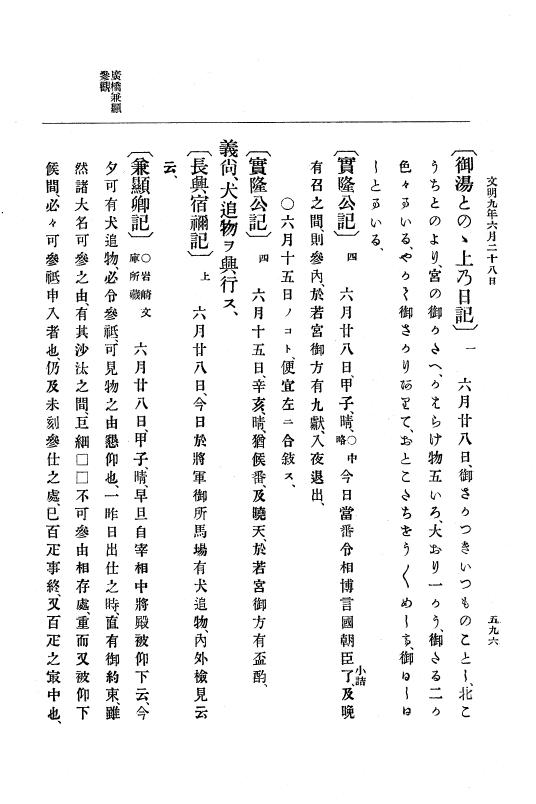 文明九年六月二十八日
五九六
〔御湯とのゝ上乃日記〕 一 六月廿八日、御さかつきいつものことし、北こ
うちとのより、宮の御かたへ、かわらけ物五いろ、大おり一かう、御たる二か
色々まいる、やかて御さかりありて、おとこたちをうく めしる、御はしは
しとまいる、
〔實隆公記〕 四 六月廿八日、甲子、晴、○中略 今日當番令相博言國朝臣了、小詰及晚
有召之間則參內、於若宮御方有九獻、入夜退出、
○六月十五日ノコト、便宜左ニ合敍ス、
〔實隆公記〕 四 六月十五日、辛亥、晴、猶候番、及曉天、於若宮御方有盃酌、
義尙、犬追物ヲ興行ス、
〔長興宿禰記〕 上 六月廿八日、今日於將軍御所馬場有犬追物、內外檢見云
云、
廣橋兼顯
參觀
〔兼顯卿記〕 ○岩崎文庫所藏 六月廿八日、甲子、晴、早旦自宰相中將殿被仰下云、今
夕可有犬追物、必令參祗、可見物之由懇仰也、一昨日出仕之時、直有御約束、雖
然諸大名可參之由、有其沙汰之間、巨細□□不可參由相存處、重而又被仰下
候間、必々可參祗申入者也、仍及未刻參仕之處、已百疋事終、又百疋之最中也、